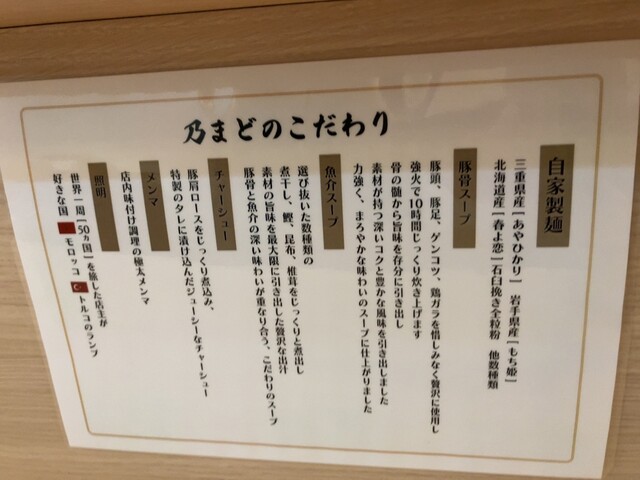 乃まどのこだわり
自家製麺
三重県産［あやひかり］ 岩手県産［もち姫］
北海道産［春よ恋］石臼挽き全粒粉 他数種類
豚骨スープ
豚頭、豚足、ゲンコツ、鶏ガラを惜しみなく贅沢に使用し
強火で10時間じっくり炊き上げます
骨の髄から旨味を存分に引き出し
素材が持つ深いコクと豊かな風味を引き出しました
力強く、まろやかな味わいのスープに仕上がりました
魚介スープ
選び抜いた数種類の
煮干し、鰹、昆布、椎茸をじっくりと煮出し
素材の旨味を最大限に引き出した贅沢な出汁
豚骨と魚介の深い味わいが重なり合う、こだわりのスープ
チャーシュー
豚肩ロースをじっくり煮込み、
特製のタレに漬け込んだジューシーなチャーシュー
メンマ
店内味付け調理の極太メンマ
照明
世界一周［50ヵ国］を旅した店主が
好きな国 モロッコ トルコのランプ